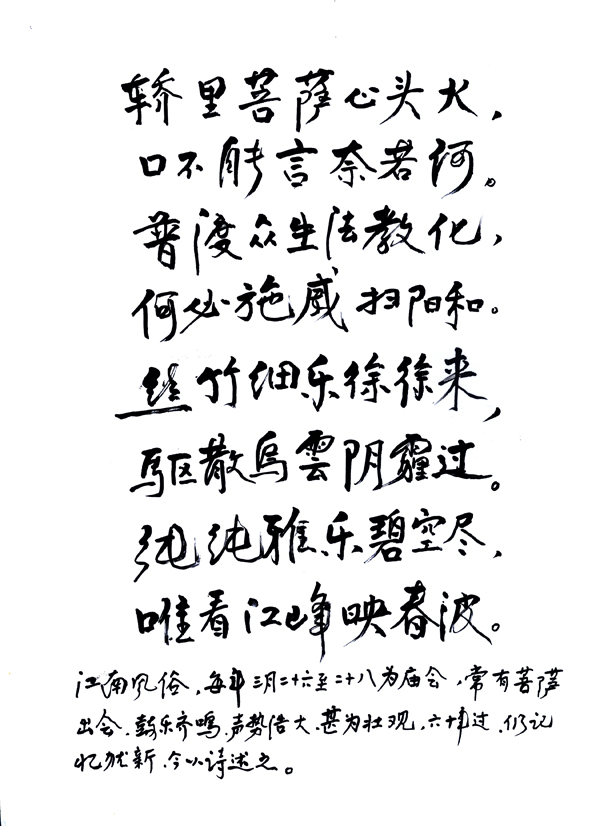 轿里菩萨心头火，
口不能言奈若何。
普渡众生法教化，
何必施威扫阳和。
丝竹细乐徐徐来，
駆散乌雲阴霾过。
纯纯雅乐碧空尽，
唯看江峰映春波。
江南风俗，每年三月二十六至二十八为庙会，常有菩萨
出会，鼓乐齐鸣，声势浩大，甚为壮观，六十年过，仍记
忆犹新，今以诗述之。